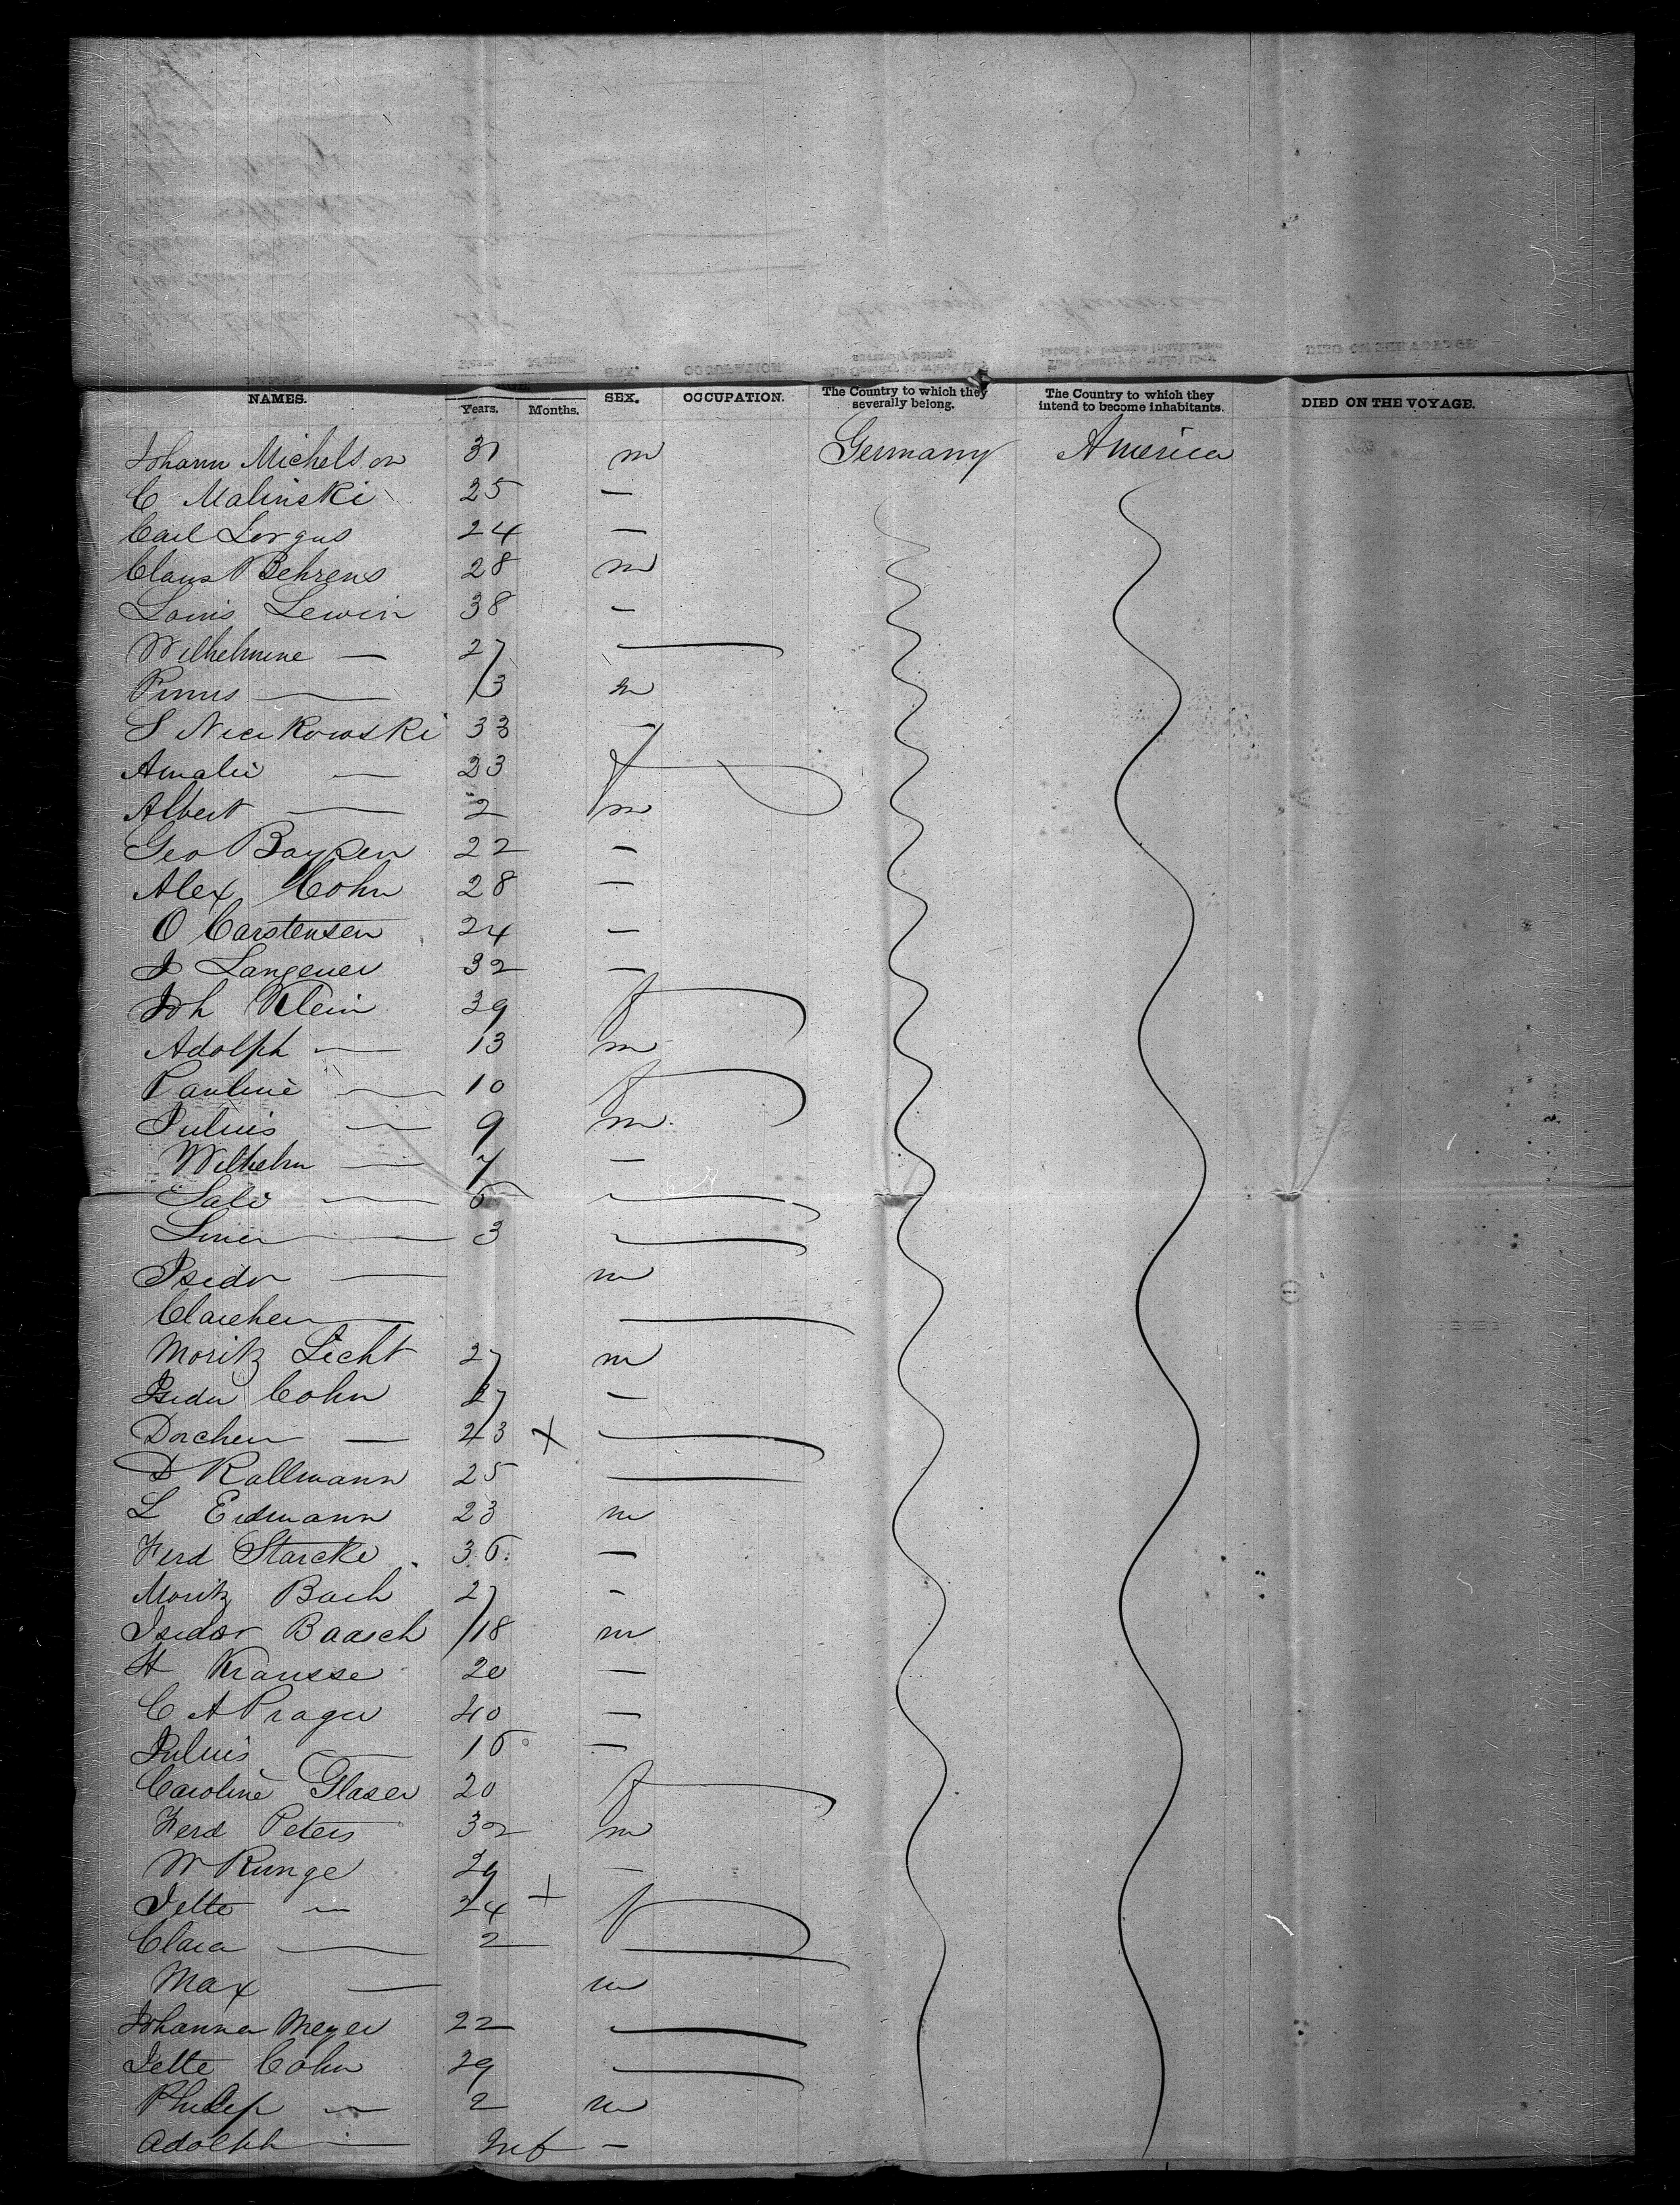 NAMES. Years. Months. SEX. OCCUPATION. The Country to which they severally belong. The Country to which they intend to become inhabitants. DIED ON THE VOYAGE.
Johann Michelson 31 m Germany America
C Malinski 25 —
Carl Lorgus 24 —
Claus Behrens 28 m
Louis Lewin 38 —
Wilhelmine — 27 —
Pinus — 3 m
S Neukowski 33 —
Amalie — 23 f
Albert — 2 m
Geo Boysen 22 —
Alex Cohn 28 —
O Carstensen 24 —
J Langener 32 —
Joh Klein 39 f
Adolph — 13 m
Pauline — 10 f
Julius — 9 m
Wilhelm — 7 —
Sali — 5 —
Line — 3 —
Isidor — m
Clarchen — —
Moritz Licht 27 m
Isidor Cohn 27 —
Dorchen — 23 + —
D Kallmann 25 —
L Erdmann 23 m
Ferd Starcke 36 —
Moritz Bach 27 —
Isidor Baasch 18 m
H Krausse 20 —
C A Prager 40 —
Julius — 16 —
Caroline Glaser 20 f
Ferd Peters 32 m
W Runge 29 —
Jette — 24 + f
Clara — 2 —
Max — m
Johanna Meyer 22 —
Jette Cohn 29 —
Philip — 2 m
Adolph — Inf —